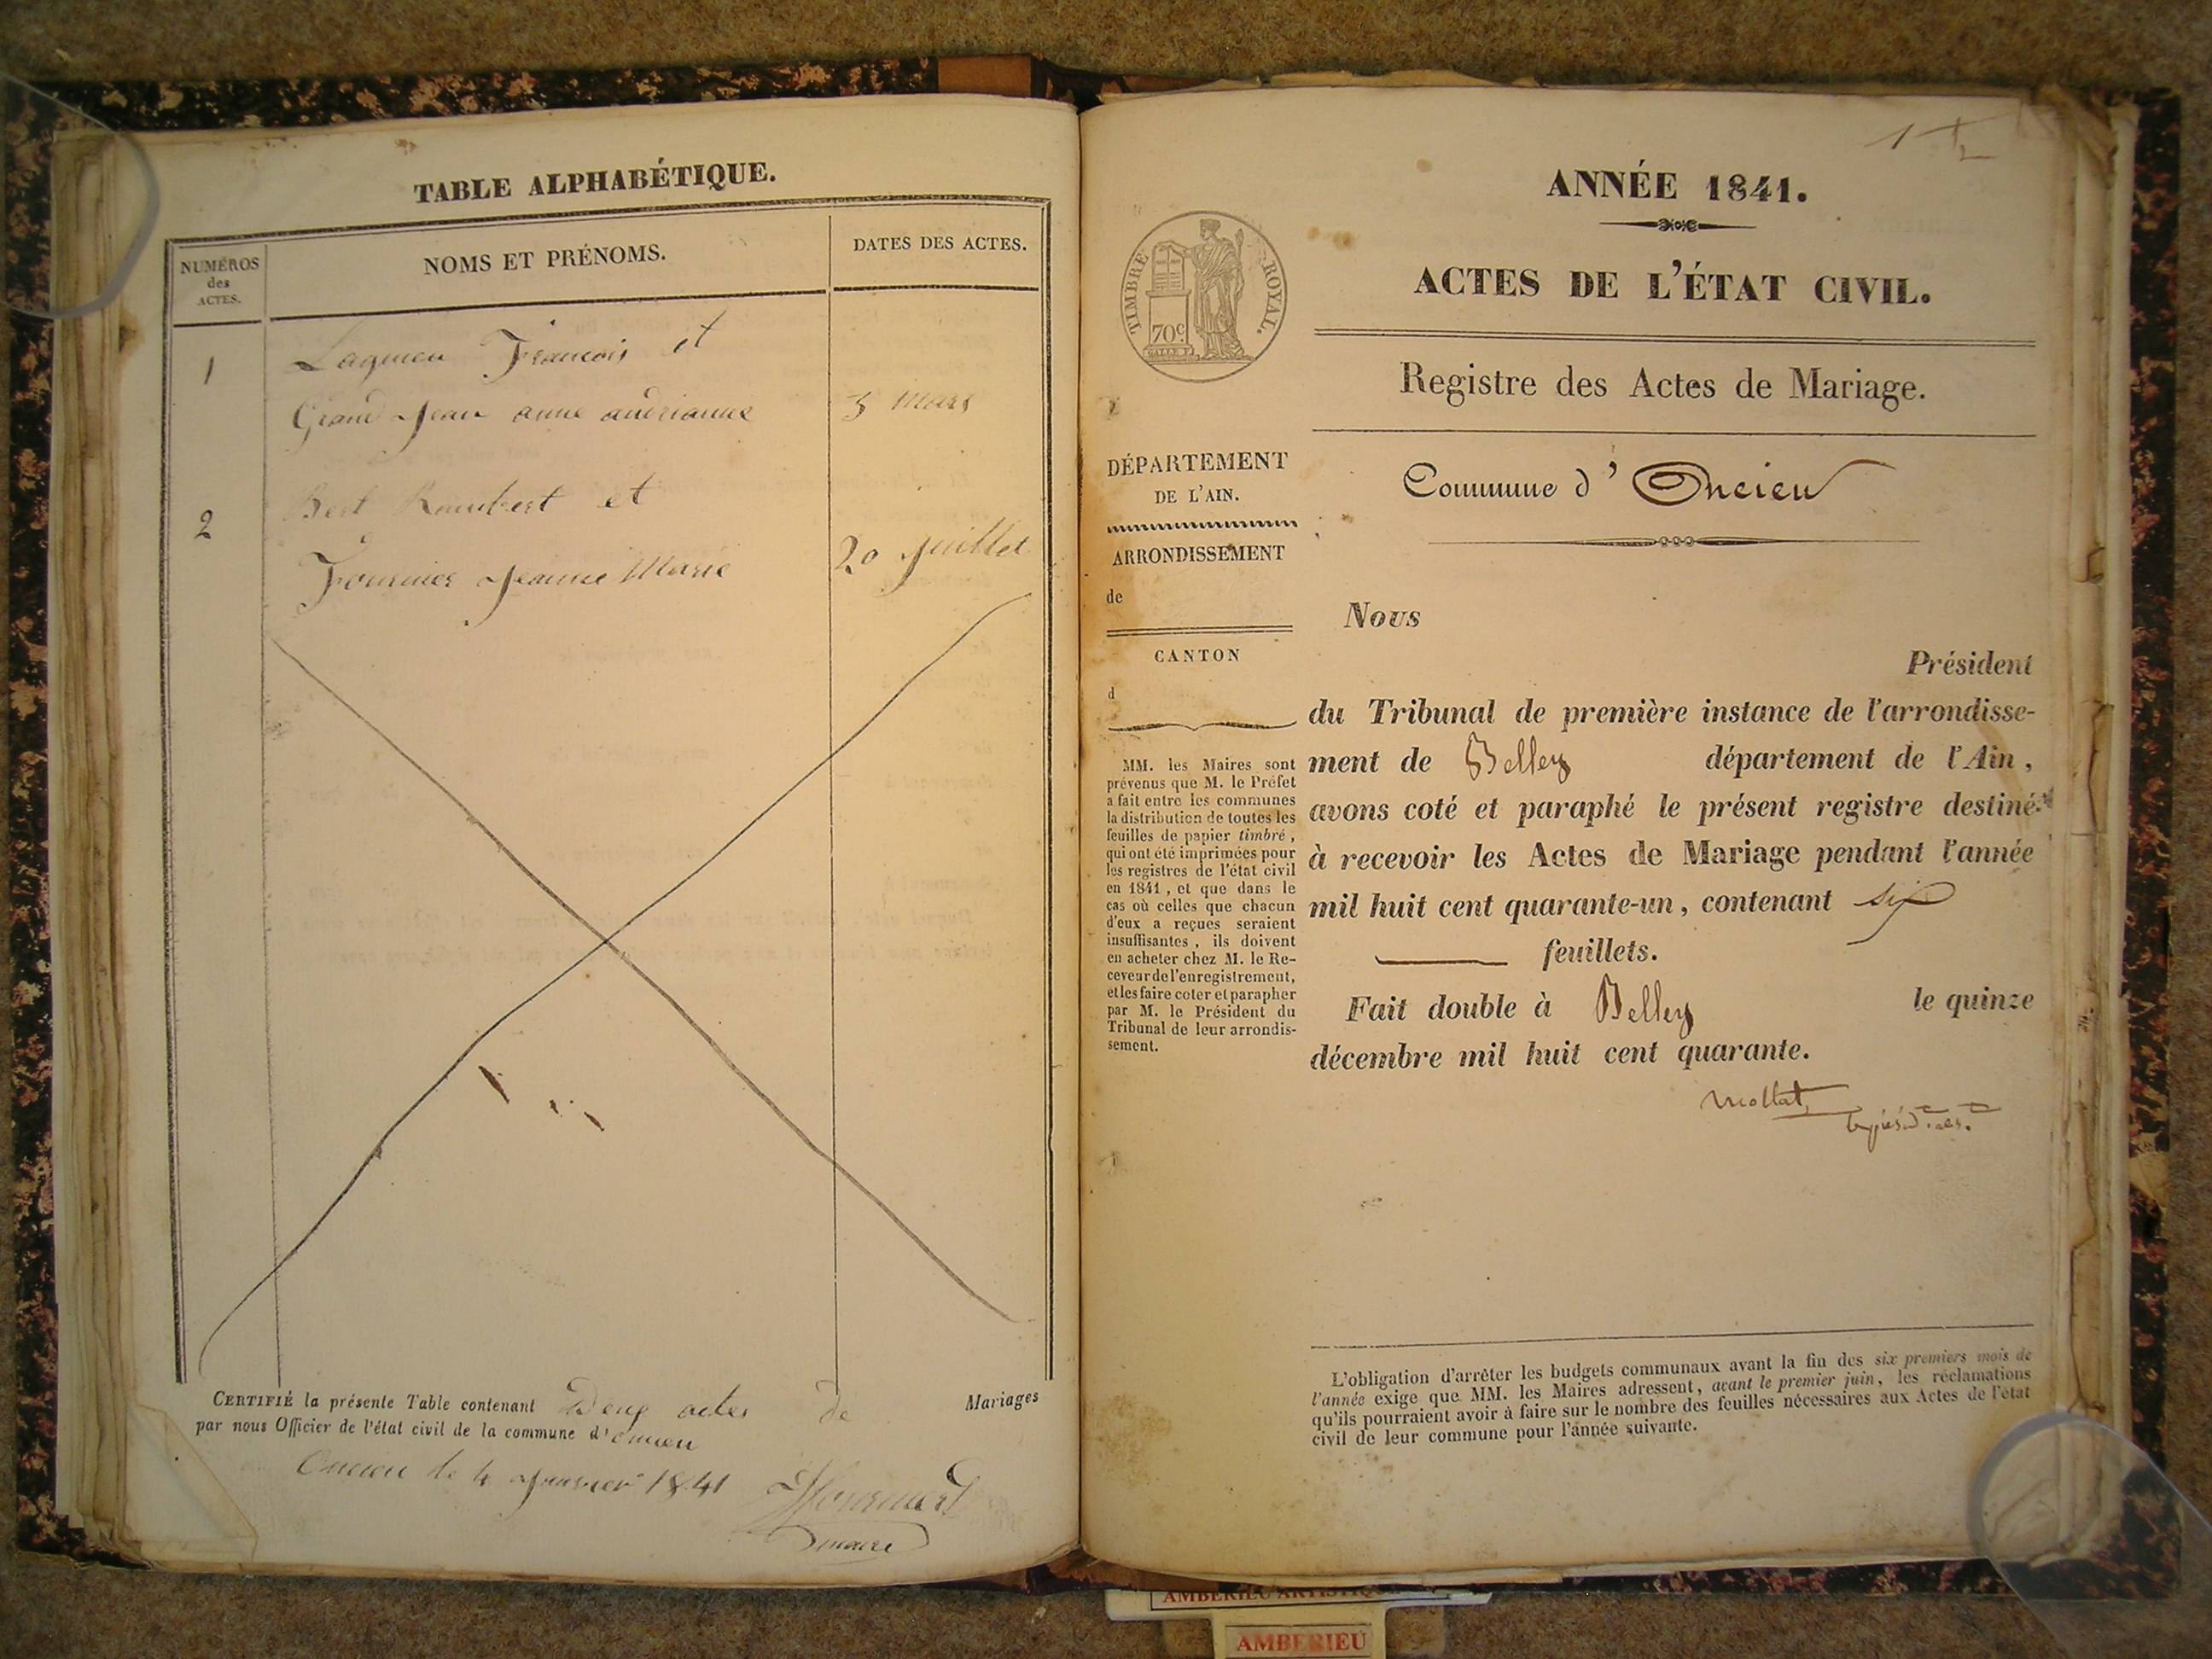 TABLE ALPHABÉTIQUE.
NUMÉROS
des
ACTES.
NOMS ET PRÉNOMS.
DATES DES ACTES.
1
Lagnieu François et
Grand Jean anne andrianne
3 Mars
2
Bert Rambert et
Fournier Jeanne Marie
20 Juillet
CERTIFIÉ la présente Table contenant Deux actes de Mariages
par nous Officier de l'état civil de la commune d'oncieu
Oncieu le 4 Janvier 1841
maire
1
ANNÉE 1841.
ACTES DE L'ÉTAT CIVIL.
TIMBRE ROYAL.
70c
Registre des Actes de Mariage.
Commune d' Oncieu
DÉPARTEMENT
DE L'AIN.
ARRONDISSEMENT
de
CANTON
d
MM. les Maires sont
prévenus que M. le Préfet
a fait entre les communes
la distribution de toutes les
feuilles de papier timbré,
qui ont été imprimées pour
les registres de l'état civil
en 1841, et que dans le
cas où celles que chacun
d'eux a reçues seraient
insuffisantes, ils doivent
en acheter chez M. le Re-
ceveur de l'enregistrement,
et les faire coter et parapher
par M. le Président du
Tribunal de leur arrondis-
sement.
Nous
Président
du Tribunal de première instance de l'arrondisse-
ment de Belley département de l'Ain,
avons coté et paraphé le présent registre destiné
à recevoir les Actes de Mariage pendant l'année
mil huit cent quarante-un, contenant six
feuillets.
Fait double à Belley le quinze
décembre mil huit cent quarante.
L'obligation d'arrêter les budgets communaux avant la fin des six premiers mois de
l'année exige que MM. les Maires adressent, avant le premier juin, les réclamations
qu'ils pourraient avoir à faire sur le nombre des feuilles nécessaires aux Actes de l'état
civil de leur commune pour l'année suivante.
AMBERIEU